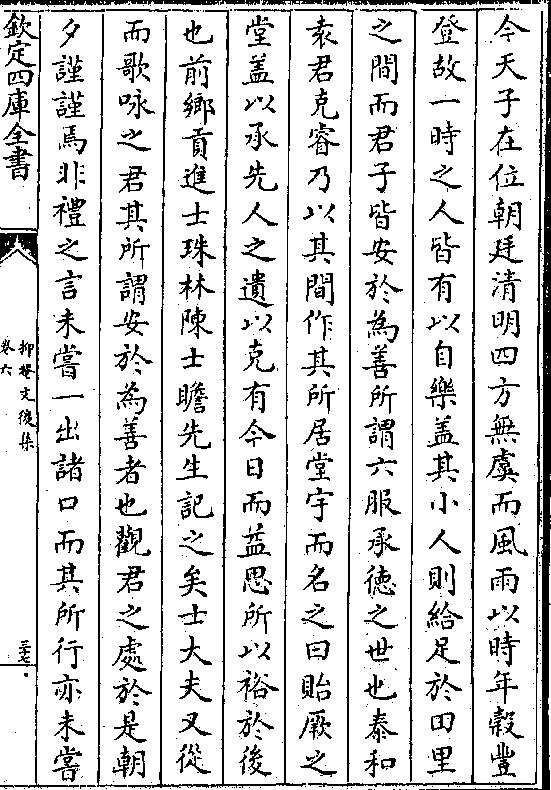 今天子在位朝廷清明四方無虞而風雨以時年榖豐
登故一時之人皆有以自樂盖其小人則給足於田里
之間而君子皆安於為善所謂六服承徳之世也泰和
袁君克睿乃以其間作其所居堂宇而名之曰貽厥之
堂盖以承先人之遺以克有今日而益思所以裕於後
也前鄉貢進士珠林陳士瞻先生記之矣士大夫又從
而歌咏之君其所謂安於為善者也觀君之處於是朝
夕謹謹焉非禮之言未嘗一出諸口而其所行亦未嘗
欽定四庫全書
抑菴文後集
卷六
三七